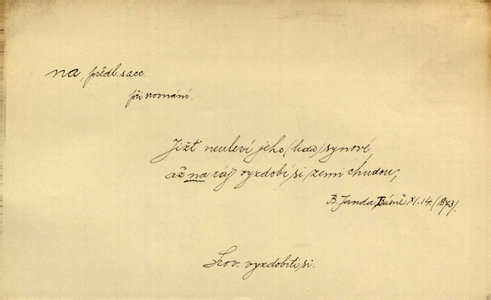 na, předl. s acc.
při srovnání.
Jižť neuleví jeho (lidu) synové
až na ráj vyzdobí si zemi chudou,
B. Janda, Básně XI. 14. (1873).
Slov. vyzdobiti si.